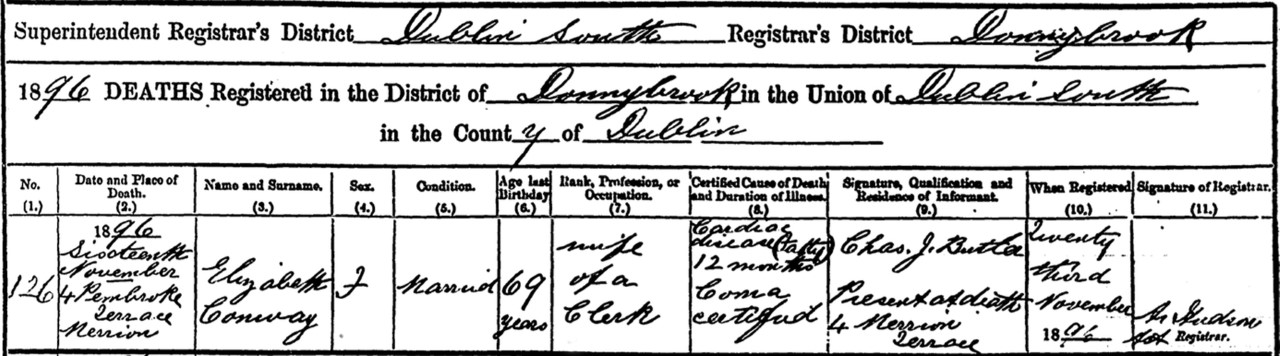 Superintendent Registrar's District Dublin South Registrar's District Donnybrook
1896 DEATHS Registered in the District of Donnybrook in the Union of Dublin South
in the County of Dublin
No. (1.)
Date and Place of Death. (2.)
Name and Surname. (3.)
Sex. (4.)
Condition. (5.)
Age last Birthday (6.)
Rank, Profession, or Occupation. (7.)
Certified Cause of Death and Duration of Illness. (8.)
Signature, Qualification and Residence of Informant. (9.)
When Registered (10.)
Signature of Registrar. (11.)
126
1896
Sixteenth
November
4 Pembroke
Terrace
Merrion
Elizabeth
Conway
F
Married
69
years
wife
of a
Clerk
Cardiac
disease (fatty)
12 months
Coma
certified
Chas. J. Butler
Present at death
4 Merrion
Terrace
Twenty
third
November
1896
Hudson
Registrar.